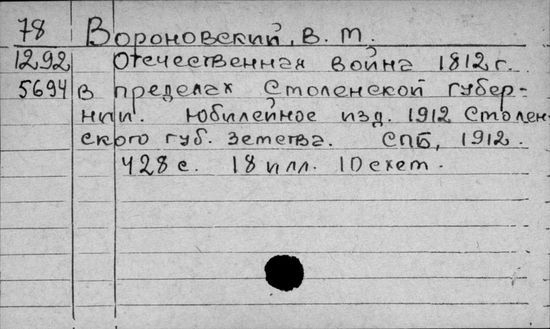 78 Вороновский, В. М.
1292 Отечественная война 1812 г.
5694 в пределах Смоленской губер-
нии. Юбилейное изд. 1912 Смолен-
ского губ. земства. СПБ, 1912.
428 с. 18 илл. 10 схем.